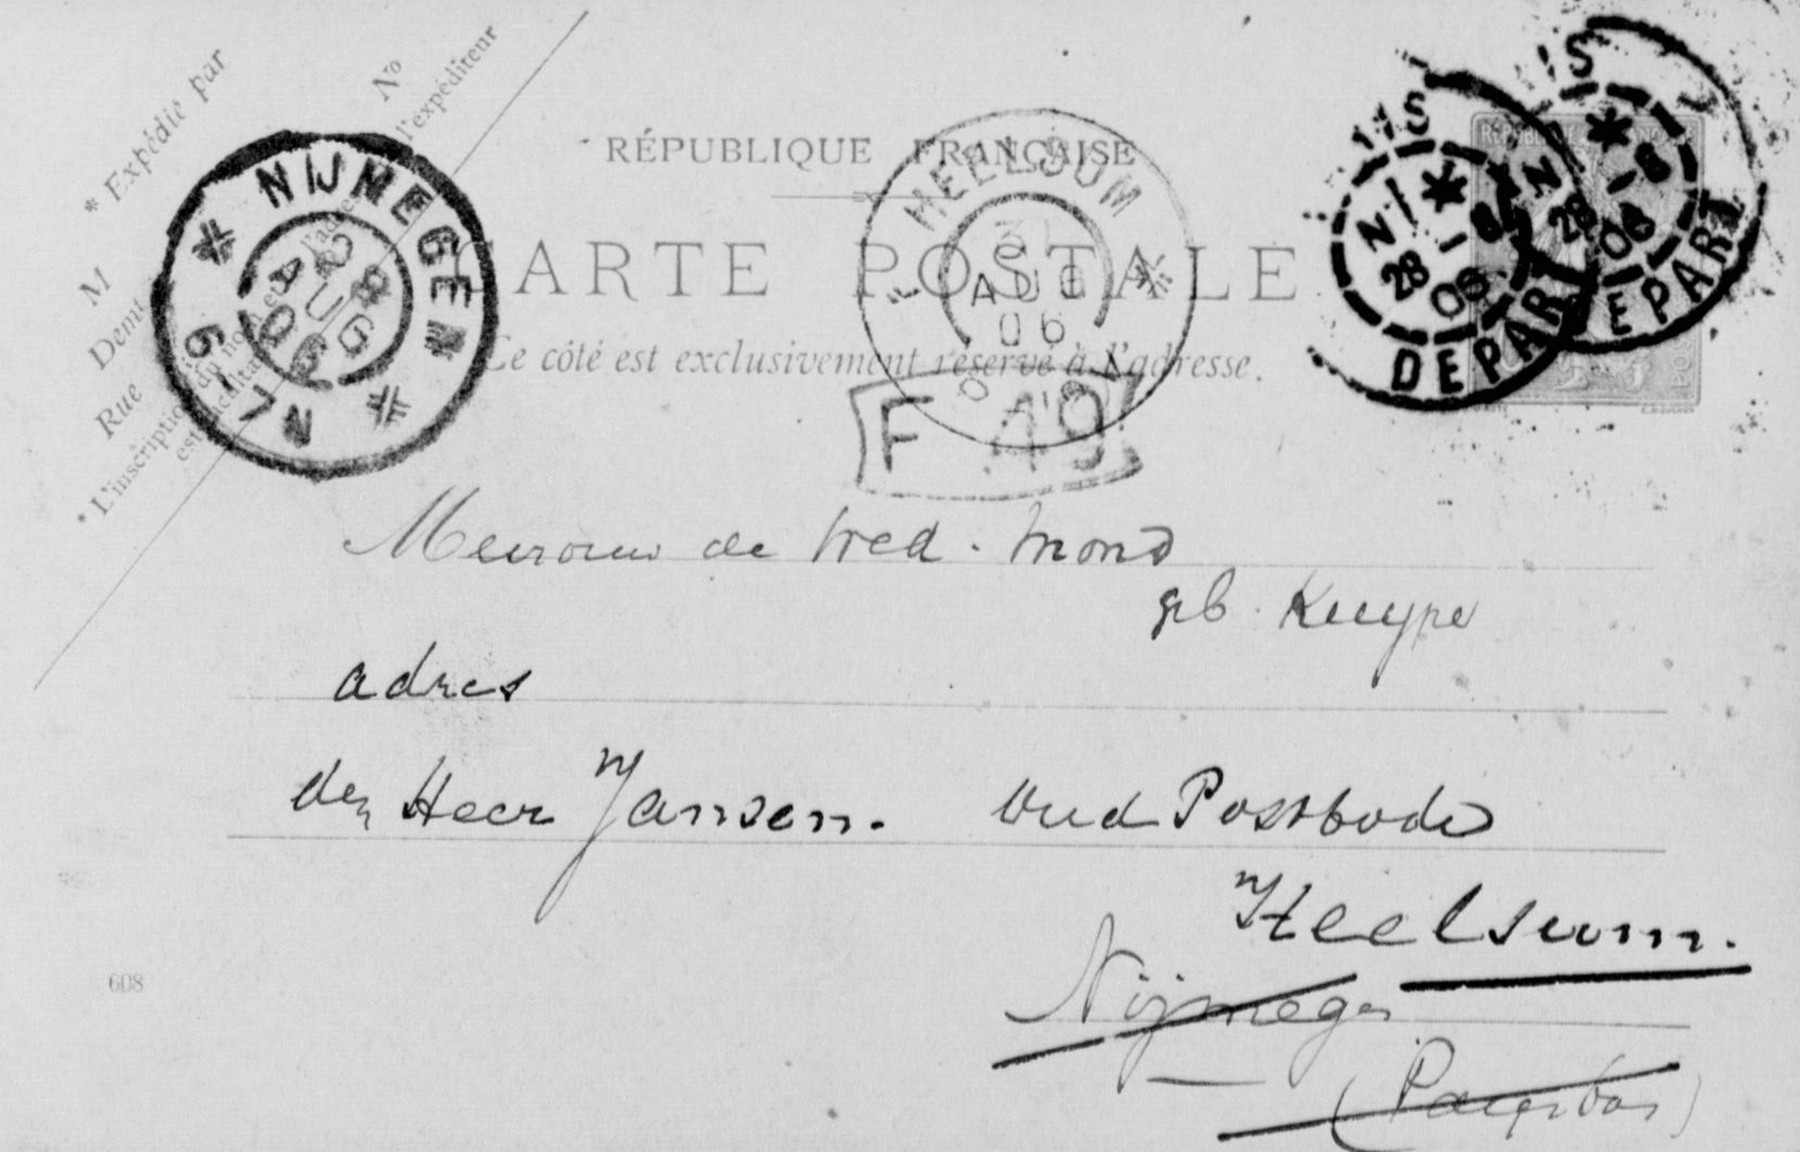 * Expédié par
M
Demt
Rue
No
* L'inscription du nom et de l'adresse de l'expéditeur
est facultative
RÉPUBLIQUE FRANÇAISE
CARTE POSTALE
Ce côté est exclusivement réservé à l'adresse.
NIJMEGEN
28
AUG
06
6-7N
HEELSUM
31
AUG
06
F 49
28
06
DEPART
28
06
DEPART
RÉPUBLIQUE FRANÇAISE
POSTES
Mevrouw de Wed. Mond
geb. Kuyper
adres
den Heer Jansen. Oud Postbode
Heelsum.
Nijmegen
608